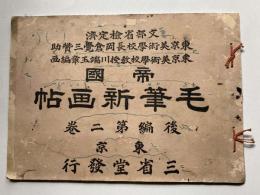 文部省檢定濟
東京美術學校長岡倉覺三賛助
東京美術學校教授川端玉章編画
帝國
毛筆新画帖
後編第二卷
東京
三省堂發行